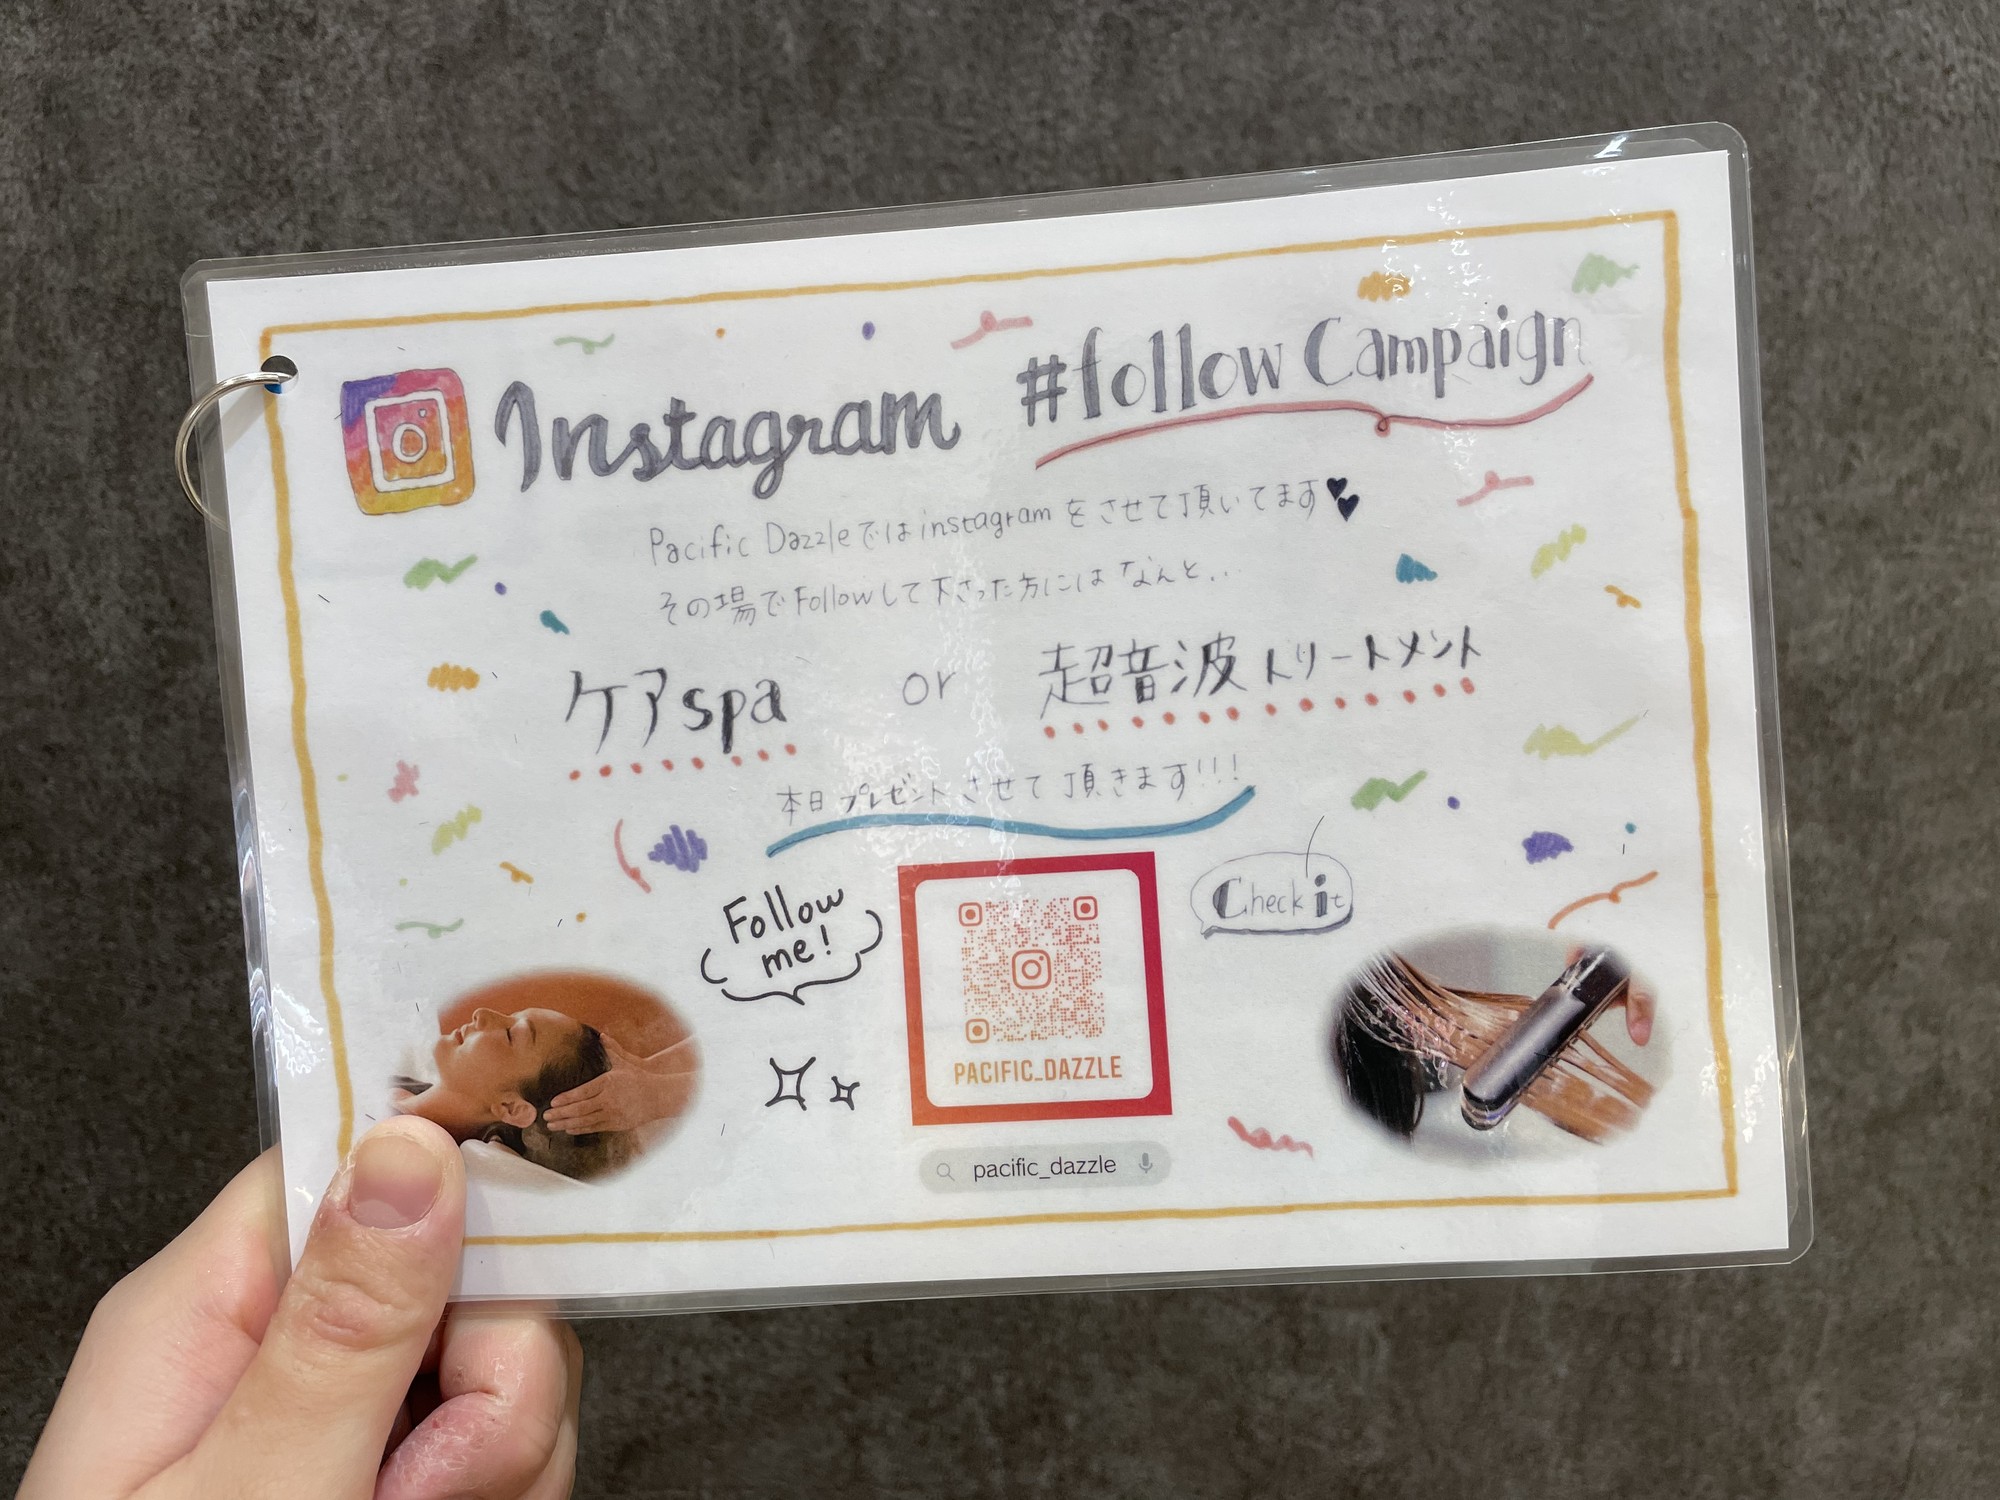 Instagram #follow Campaign
Pacific Dazzleではinstagramをさせて頂いてます
その場でFollowして下さった方にはなんと...
ケアspa or 超音波トリートメント
本日プレゼントさせて頂きます!!!
Follow
me!
Check it
PACIFIC_DAZZLE
pacific_dazzle